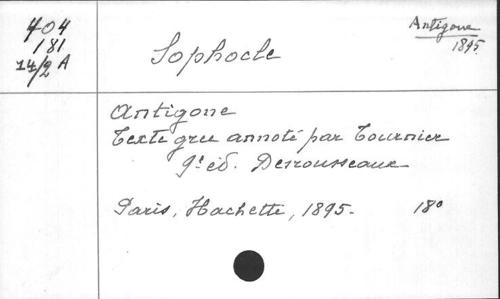 404
181
14/2 A
Sophocle
Antigone
1895.
Antigone
Texte grec annoté par Tournier
9e éd. Desrousseaux
Paris, Hachette, 1895. 18°